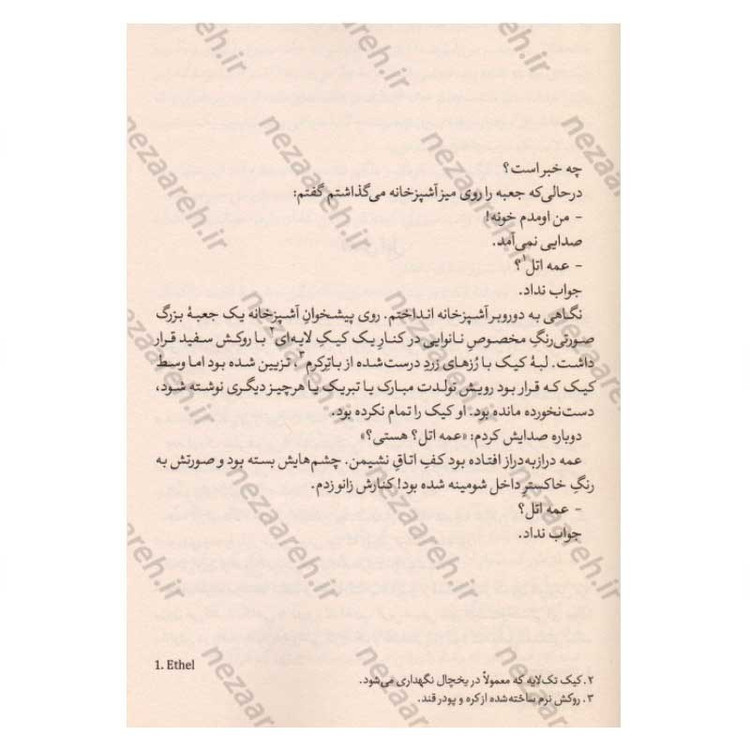 چه خبر است؟
درحالی‌که جعبه را روی میز آشپزخانه می‌گذاشتم گفتم:
- من اومدم خونه!
صدایی نمی‌آمد.
- عمه اتل¹؟
جواب نداد.
نگاهی به دوروبر آشپزخانه انداختم. روی پیشخوانِ آشپزخانه یک جعبهٔ بزرگ
صورتی‌رنگِ مخصوصِ نانوایی در کنار یک کیکِ لایه‌ای² با روکش سفید قرار
داشت. لبهٔ کیک با رُزهای زردِ درست‌شده از باترکرم³، تزیین شده بود اما وسط
کیک که قرار بود رویش تولدت مبارک یا تبریک یا هرچیز دیگری نوشته شود،
دست‌نخورده مانده بود. او کیک را تمام نکرده بود.
دوباره صدایش کردم: «عمه اتل؟ هستی؟»
عمه درازبه‌دراز افتاده بود کفِ اتاقِ نشیمن. چشم‌هایش بسته بود و صورتش به
رنگِ خاکسترِ داخل شومینه شده بود! کنارش زانو زدم.
- عمه اتل؟
جواب نداد.
1. Ethel
۲. کیک تک‌لایه که معمولاً در یخچال نگهداری می‌شود.
۳. روکش نرم ساخته‌شده از کره و پودر قند.
nezaareh.ir